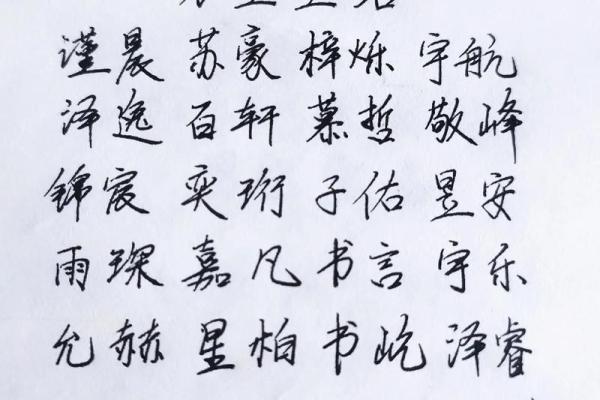 谨晨 苏豪 梓烁 宇航
泽逸 百轩 慕哲 敬峰
锦宸 奕珩 子佑 昱安
雨琛 嘉凡 书言 宇乐
允赫 星柏 书屹 泽睿